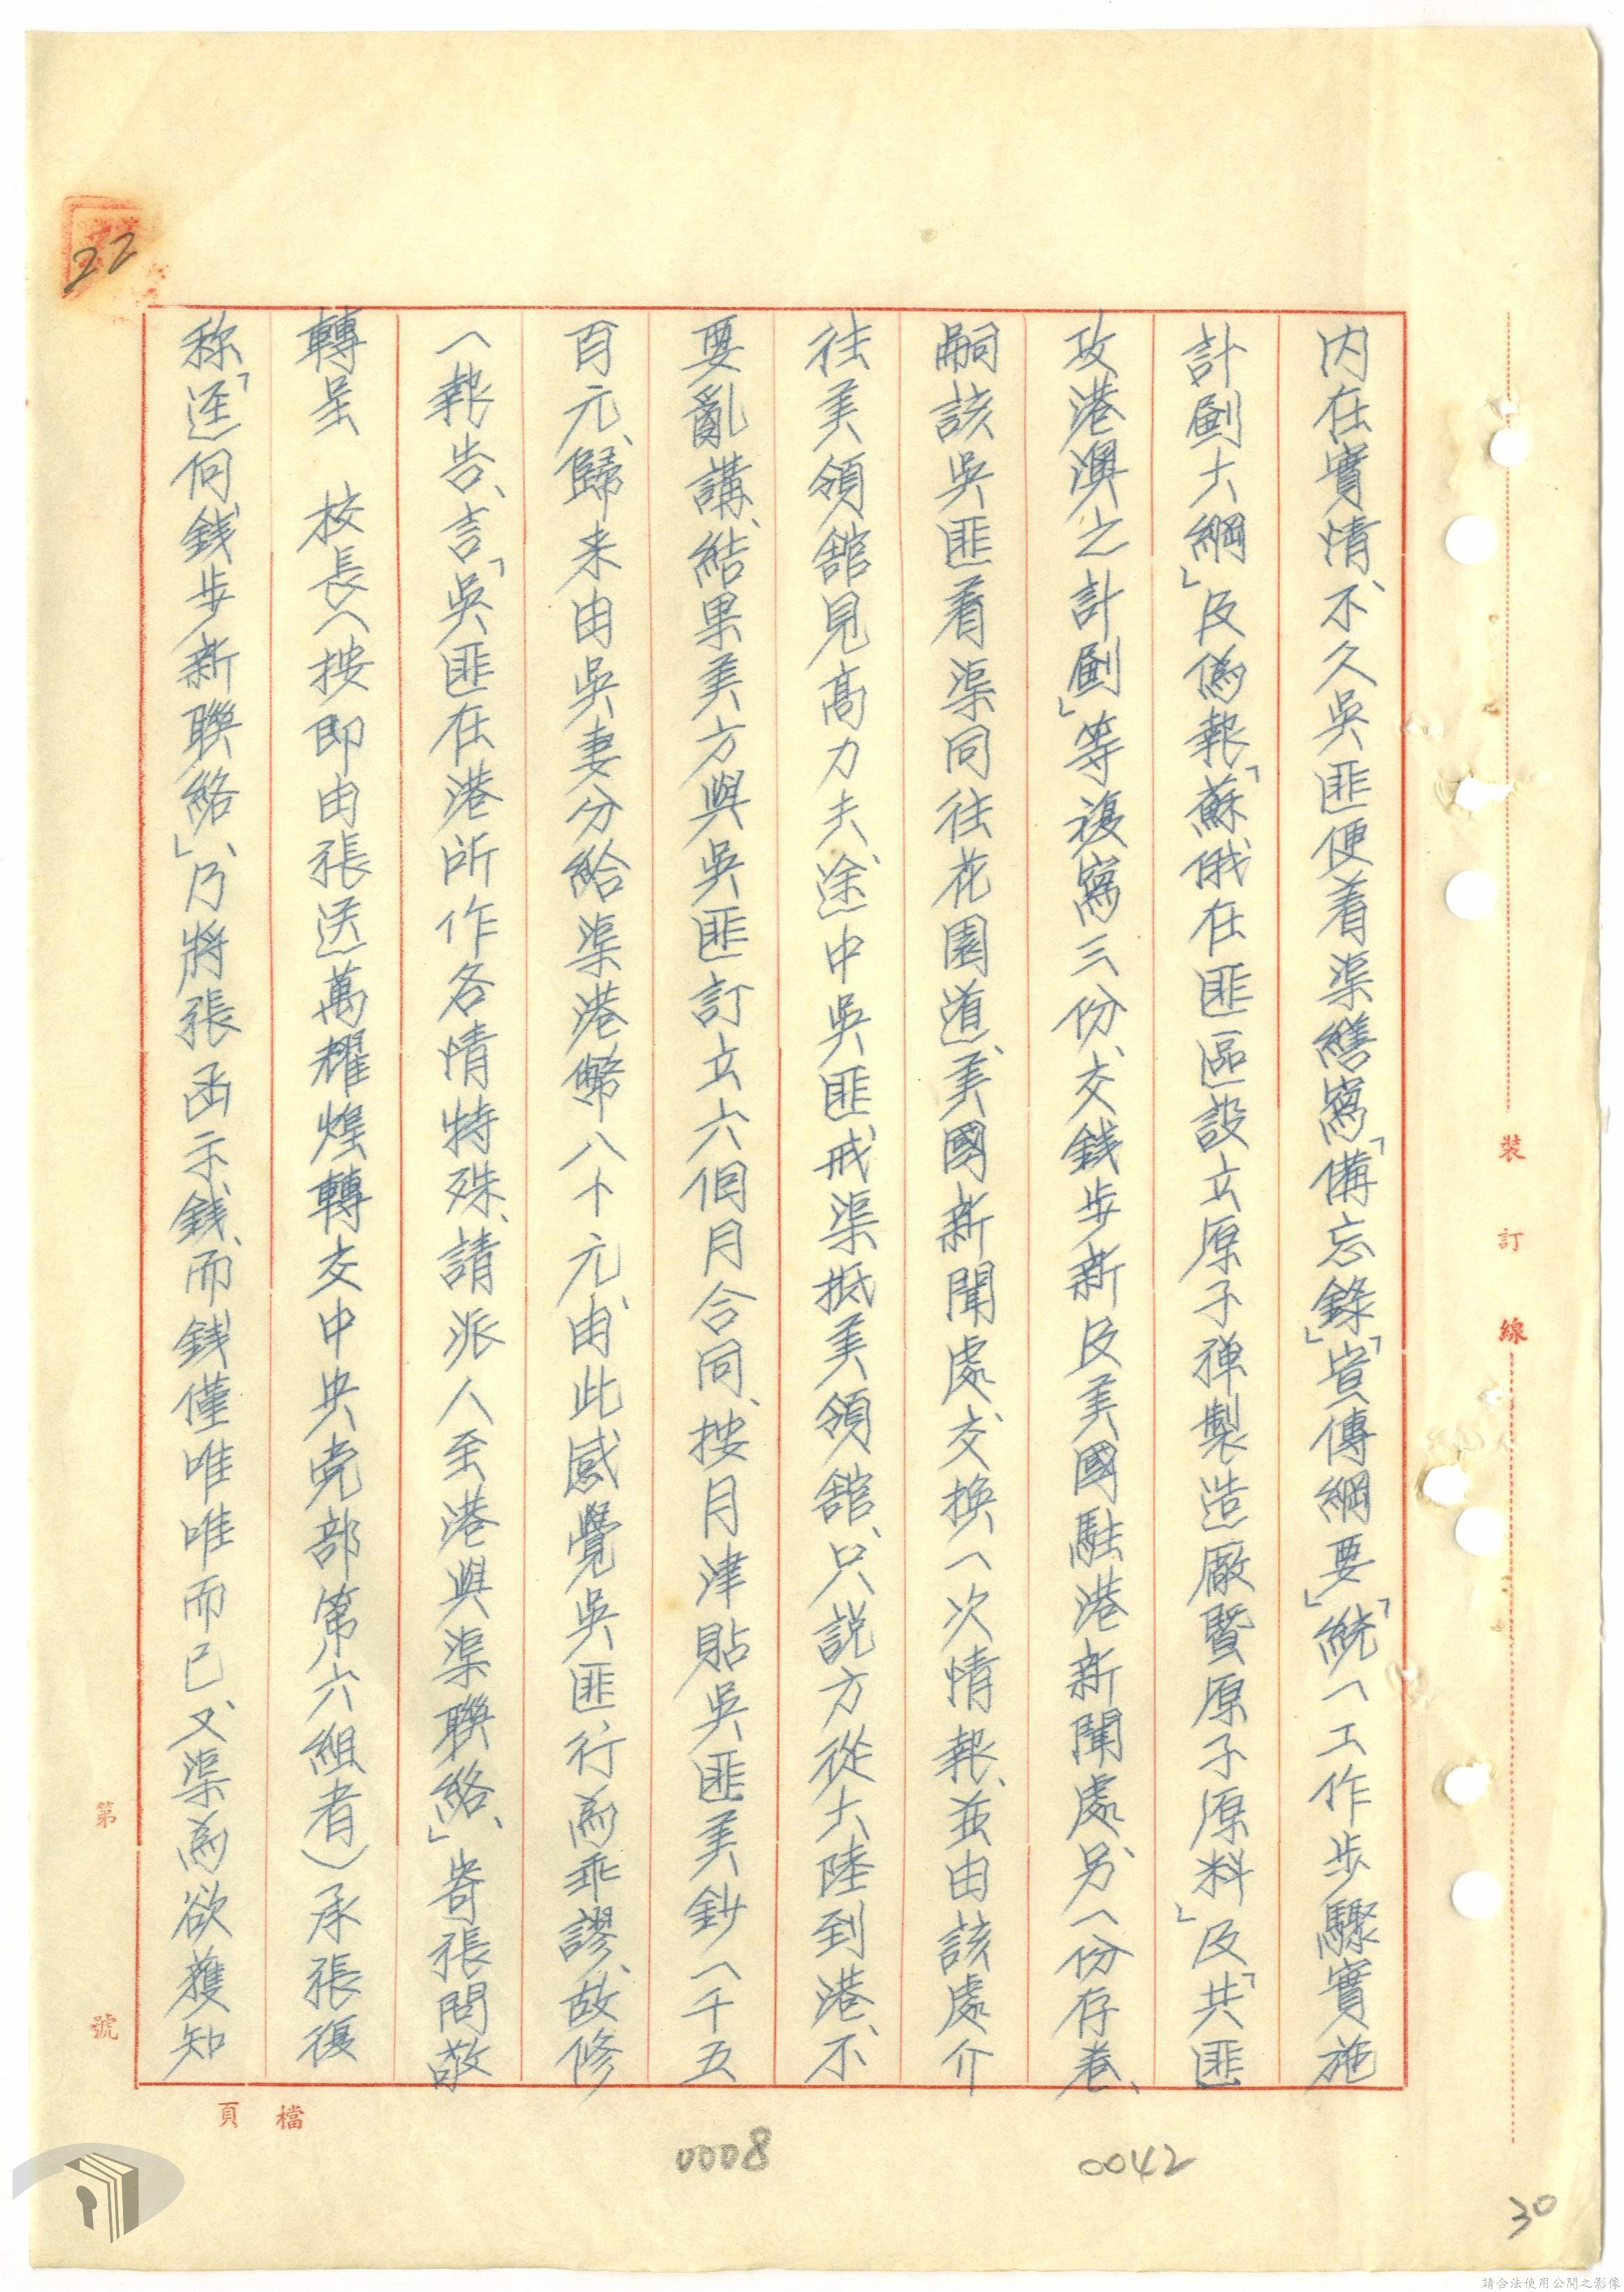 内在實情、不久吳匪便着渠繕寫「備忘錄」「宣傳綱要」「統一工作步驟實施
計劃大綱」及偽報「蘇俄在匪區設立原子彈製造廠暨原子原料」及「共匪
攻港澳之計劃」等複寫三份、交錢步新及美國駐港新聞處、另一份存卷、
嗣該吳匪着渠同往花園道、美國新聞處、交換一次情報、並由該處介
往美領舘見高力夫、途中吳匪戒渠抵美領舘、只説方從大陸到港、不
要亂講、結果美方與吳匪訂立六個月合同、按月津貼吳匪美鈔一千五
百元、歸来由吳妻分給渠港幣八十元、由此感覺吳匪行為乖謬、故修
一報告、言「吳匪在港所作各情特殊、請派人至港與渠聯絡、」寄張問敬
轉呈　校長（按即由張送萬耀煌轉交中央党部第六組者）承張復
称「逕向錢步新聯絡」、乃將張函示錢、而錢僅唯唯而已、又渠為欲獲知
裝訂線
第　號
檔　頁
22
0008
0042
30
請合法使用公開之影像